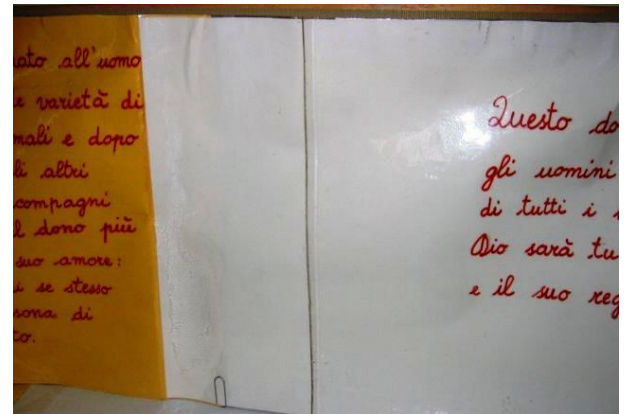 ato all'uomo
e varietà di
mali e dopo
li altri
compagni
l dono più
suo amore:
i se stesso
sona di
to.
Questo do
gli uomini
di tutti i
Dio sarà tu
e il suo reg